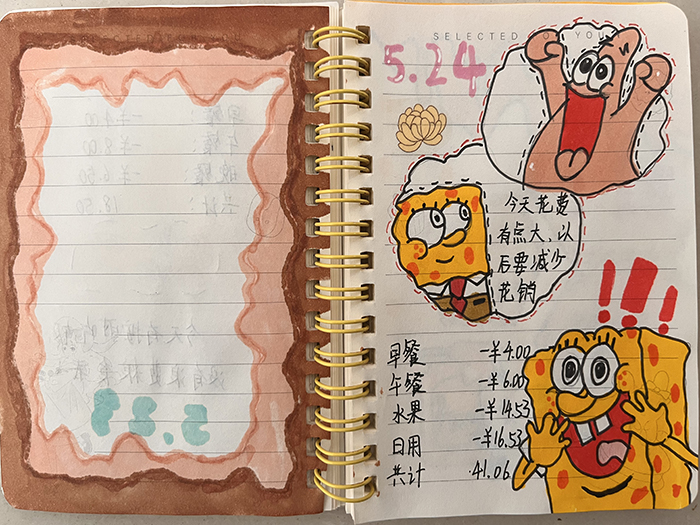 SELECTED
YOU
5.24
今天花费
有点大,以
后要减少
花销
!!!
早餐 -¥4.00
午餐 -¥6.00
水果 -¥14.53
日用 -¥16.53
共计 41.06